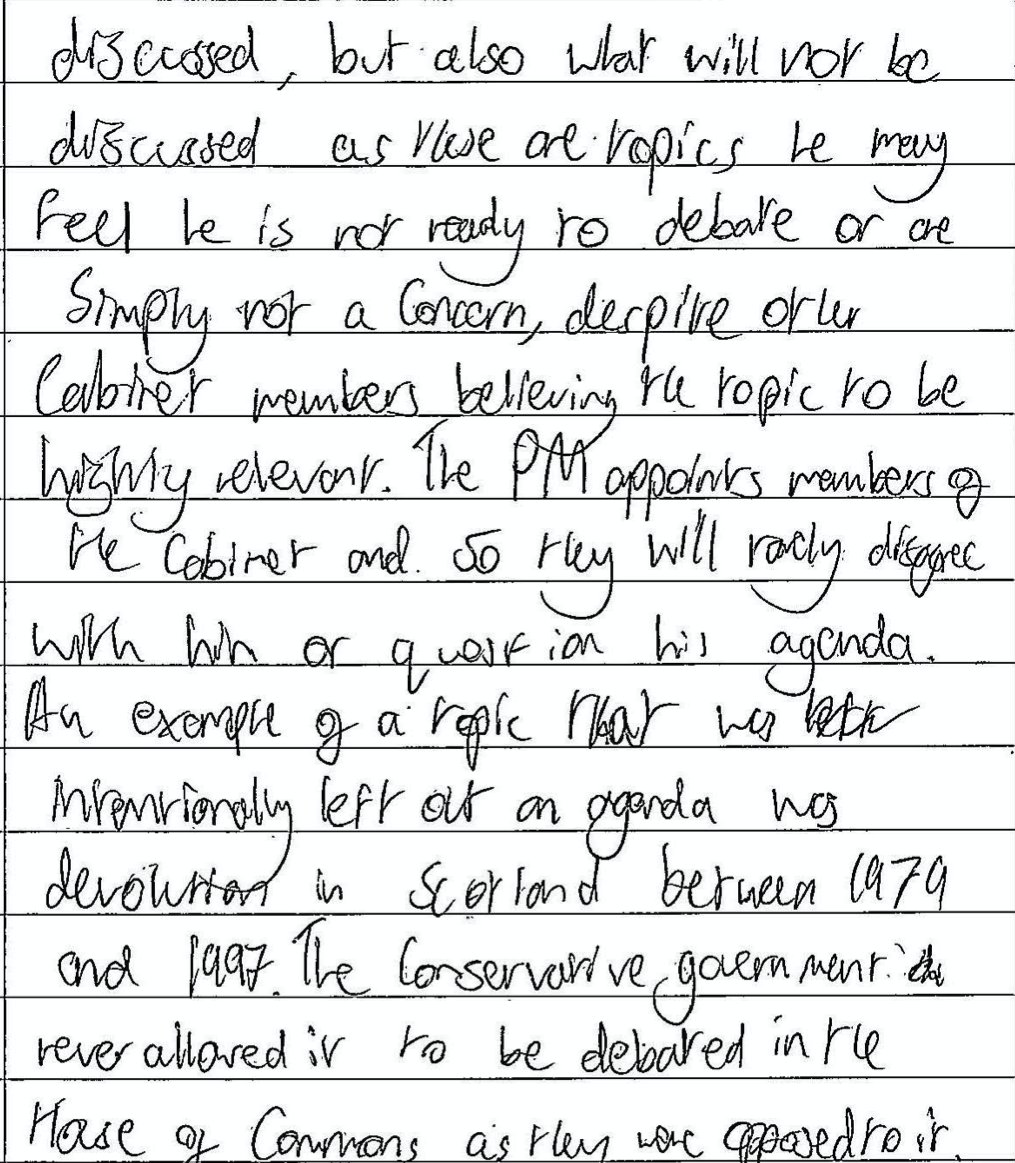 discussed, but also what will not be
discussed as these are topics he may
feel he is not ready to debate or are
simply not a concern, despite other
Cabinet members believing the topic to be
highly relevant. The PM appoints members of
the Cabinet and so they will rarely disagree
with him or question his agenda.
An example of a topic that was
intentionally left out an agenda was
devolution in Scotland between 1979
and 1997. The Conservative government
never allowed it to be debated in the
House of Commons as they were opposed to it.